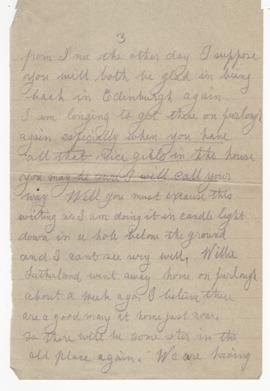 3
from I no the other day I suppose
you will both be glad in being
back in Edinburgh again.
I am longing to get there on furlough
again especially when you have
all that nice girls in the house
you may be sure I will call your
way. Well you must excuse this
writing as I am doing it in candle light
down in a hole below the ground
and I cant see very well. Willie
Sutherland went away home on furlough
about a week ago I believe there
are a good many at home just now.
so there will be some stir in the
old place again. We are having